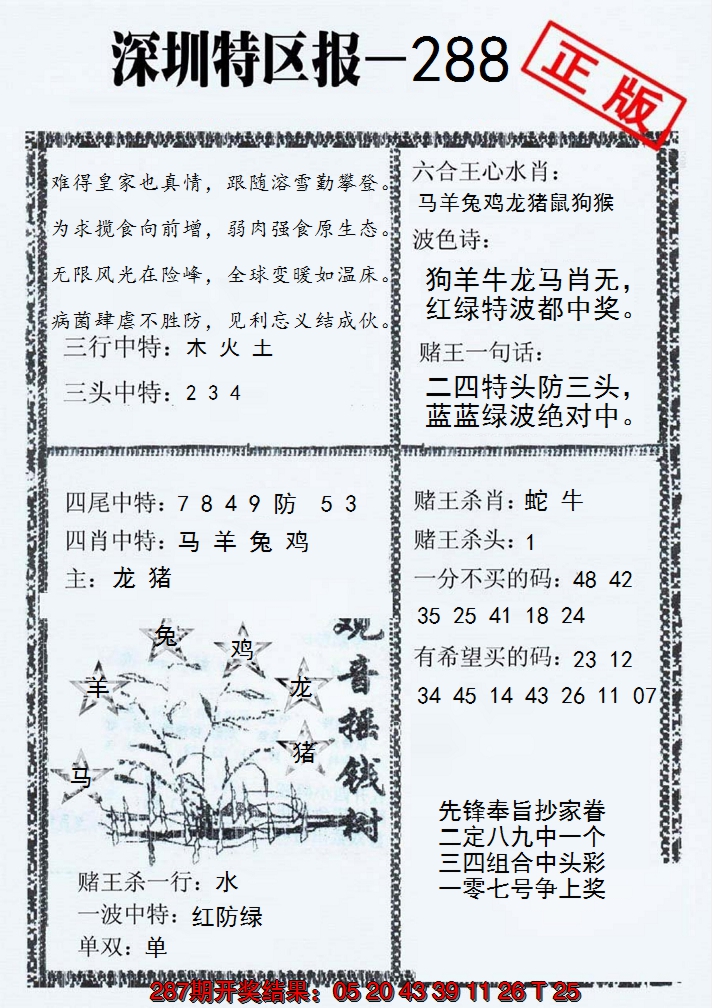 深圳特区报—288
正版
难得皇家也真情，跟随溶雪勤攀登。
为求揽食向前增，弱肉强食原生态。
无限风光在险峰，全球变暖如温床。
病菌肆虐不胜防，见利忘义结成伙。
三行中特：木 火 土
三头中特：2 3 4
六合王心水肖：
马羊兔鸡龙猪鼠狗猴
波色诗：
狗羊牛龙马肖无，
红绿特波都中奖。
赌王一句话：
二四特头防三头，
蓝蓝绿波绝对中。
四尾中特：7 8 4 9 防 5 3
四肖中特：马 羊 兔 鸡
主：龙 猪
兔
鸡
羊
龙
猪
马
观音摇钱树
赌王杀一行：水
一波中特：红防绿
单双：单
赌王杀肖：蛇 牛
赌王杀头：1
一分不买的码：48 42
35 25 41 18 24
有希望买的码：23 12
34 45 14 43 26 11 07
先锋奉旨抄家眷
二定八九中一个
三四组合中头彩
一零七号争上奖
287期开奖结果：05 20 43 39 11 26 T 25